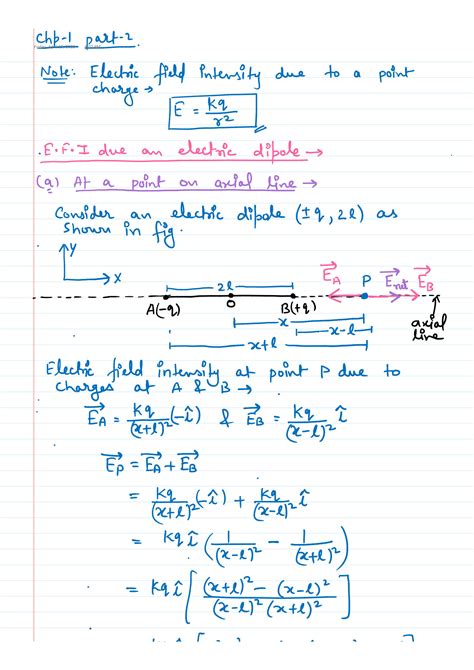 Chp-1 part-2.
Note: Electric field intensity due to a point
charge →
E = Kq/r²
E.F.I due an electric dipole →
(a) At a point on axial line →
Consider an electric dipole (±q, 2l) as
shown in fig.
Y
X
2l
E⃗_A P E⃗_net E⃗_B
A(-q) O B(+q)
x
x-l
x+l
axial
line
Electric field intensity at point P due to
charges at A & B →
E⃗_A = Kq/(x+l)² (-î) & E⃗_B = Kq/(x-l)² î
E⃗_P = E⃗_A + E⃗_B
= Kq/(x+l)² (-î) + Kq/(x-l)² î
= Kq î (1/(x-l)² - 1/(x+l)²)
= Kq î [((x+l)² - (x-l)²)/((x-l)² (x+l)²)]